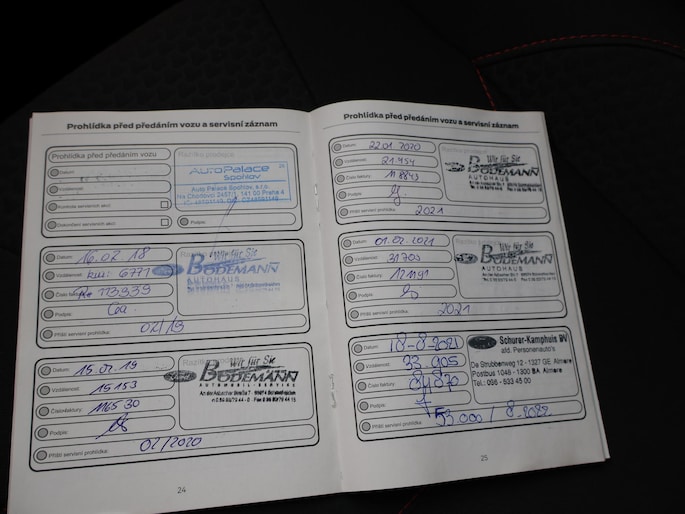 Prohlídka před předáním vozu a servisní záznam
Prohlídka před předáním vozu
Razítko prodejce
Datum:
Vzdálenost:
Kontrola servisních akcí:
Dokončení servisních akcí:
Podpis:
AutoPalace
Spořilov
Auto Palace Spořilov, s.r.o.
Na Chodovci 2457/1, 141 00 Praha 4
Datum: 16.02.18
Vzdálenost: km: 6771
Číslo faktury: Re 113939
Podpis:
Příští servisní prohlídka: 02/19
Wir für Sie
BODEMANN
AUTOHAUS
Datum: 15.01.19
Vzdálenost: 15153
Číslo faktury: 116530
Podpis:
Příští servisní prohlídka: 02/2020
Wir für Sie
BODEMANN
AUTOMOBIL-SERVICE
24
Prohlídka před předáním vozu a servisní záznam
Datum: 22.01.2020
Vzdálenost: 21.454
Číslo faktury: 118843
Podpis:
Příští servisní prohlídka: 2021
Wir für Sie
BODEMANN
AUTOHAUS
Datum: 01.02.2021
Vzdálenost: 31700
Číslo faktury: 121191
Podpis:
Příští servisní prohlídka: 2021
Wir für Sie
BODEMANN
AUTOHAUS
Datum: 18-8-2021
Vzdálenost: 33 905
Číslo faktury:
Podpis:
Příští servisní prohlídka: 53000 / 8-2022
Schurer-Kamphuis BV
afd. Personenauto's
De Strubbenweg 12 - 1327 GE Almere
Postbus 1049 - 1300 BA Almere
Tel.: 036 - 533 45 00
25